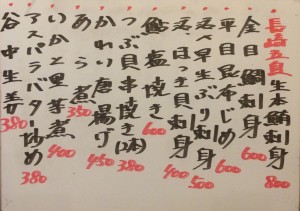 長崎五島生本鮪刺身 800
金目鯛刺身 600
平目昆布じめ 600
天然早生ぶり刺身 500
活ほっき貝刺身 400
鮎塩焼き 600
つぶ貝串焼き(2本) 380
かれい唐揚げ 450
あら煮 350
いかと里芋煮 400
アスパラバター炒め 380
谷中生姜 380